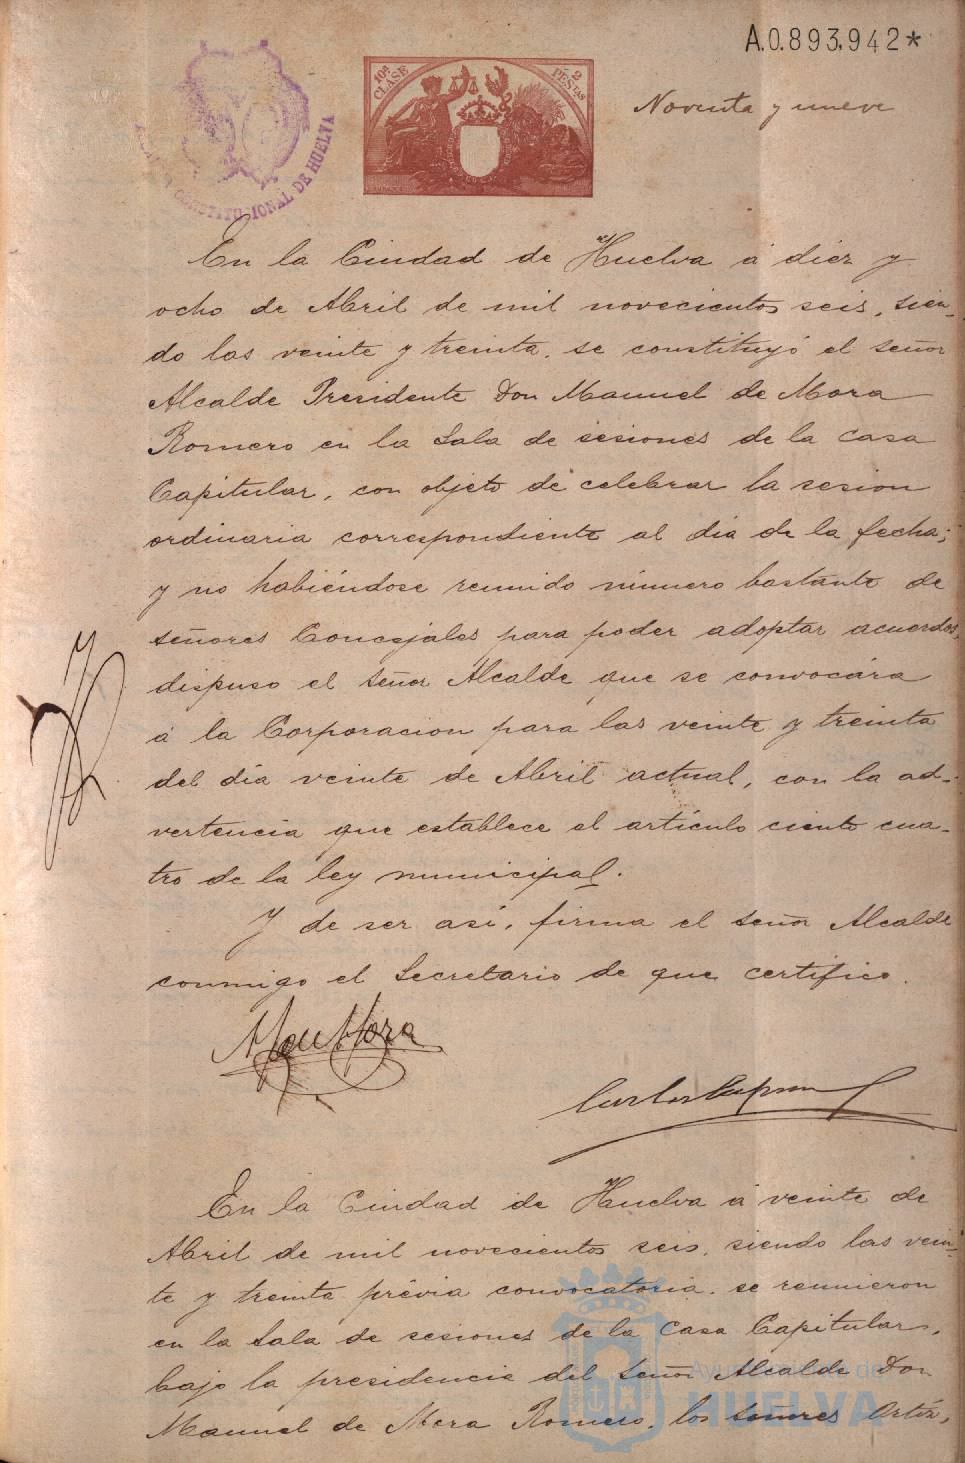 A.0.893,942*
10ª CLASE
2 PESETAS
Noventa y nueve
CONSTITUCIONAL DE HUELVA
En la Ciudad de Huelva á diez y
ocho de Abril de mil novecientos seis, sien-
do las veinte y treinta, se constituyó el señor
Alcalde Presidente Don Manuel de Mora
Romero en la Sala de sesiones de la Casa
Capitular, con objeto de celebrar la sesion
ordinaria correspondiente al dia de la fecha;
y no habiéndose reunido número bastante de
señores Concejales para poder adoptar acuerdos,
dispuso el señor Alcalde que se convocára
á la Corporacion para las veinte y treinta
del dia veinte de Abril actual, con la ad-
vertencia que establece el artículo ciento cua-
tro de la ley municipal.
Y de ser así, firma el señor Alcalde
conmigo el Secretario de que certifico.
Man Mora
Carlos
En la Ciudad de Huelva á veinte de
Abril de mil novecientos seis, siendo las vein-
te y treinta prévia convocatoria, se reunieron
en la Sala de sesiones de la Casa Capitular,
bajo la presidencia del Señor Alcalde Don
Manuel de Mora Romero, los señores Ortiz,
Ayuntamiento de
HUELVA